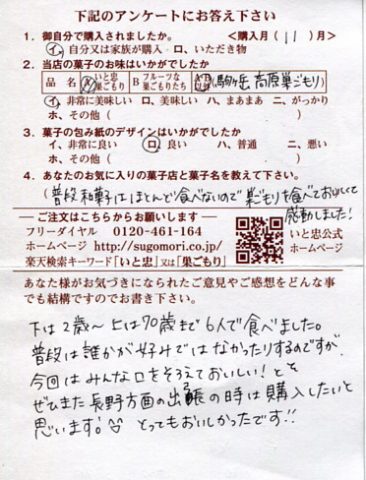 下記のアンケートにお答え下さい
1．御自分で購入されましたか。 ＜購入月（11）月＞
イ、自分又は家族が購入・ロ、いただき物
2．当店の菓子のお味はいかがでしたか
品名 A いと忠巣ごもり B フルーツな巣ごもりたち (駒ヶ岳 高原巣ごもり)
イ、非常に美味しい ロ、美味しい ハ、まあまあ ニ、がっかり
ホ、その他（ ）
3．菓子の包み紙のデザインはいかがでしたか
イ、非常に良い ロ、良い ハ、普通 ニ、悪い
ホ、その他（ ）
4．あなたのお気に入りの菓子店と菓子名を教えて下さい。
（普段和菓子はほとんど食べないので巣ごもりを食べておいしくて
感動しました！
ご注文はこちらからお願いします
フリーダイヤル 0120-461-164
ホームページ http://sugomori.co.jp/
楽天検索キーワード「いと忠」又は「巣ごもり」
いと忠公式
ホームページ
あなた様がお気づきになられたご意見やご感想をどんな事
でも結構ですのでお書き下さい。
下は2歳〜上は70歳まで6人で食べました。
普段は誰かが好みではなかったりするのですが
今回はみんな口をそろえておいしい！と
ぜひまた長野方面の出張の時は購入したいと
思います。とってもおいしかったです!!